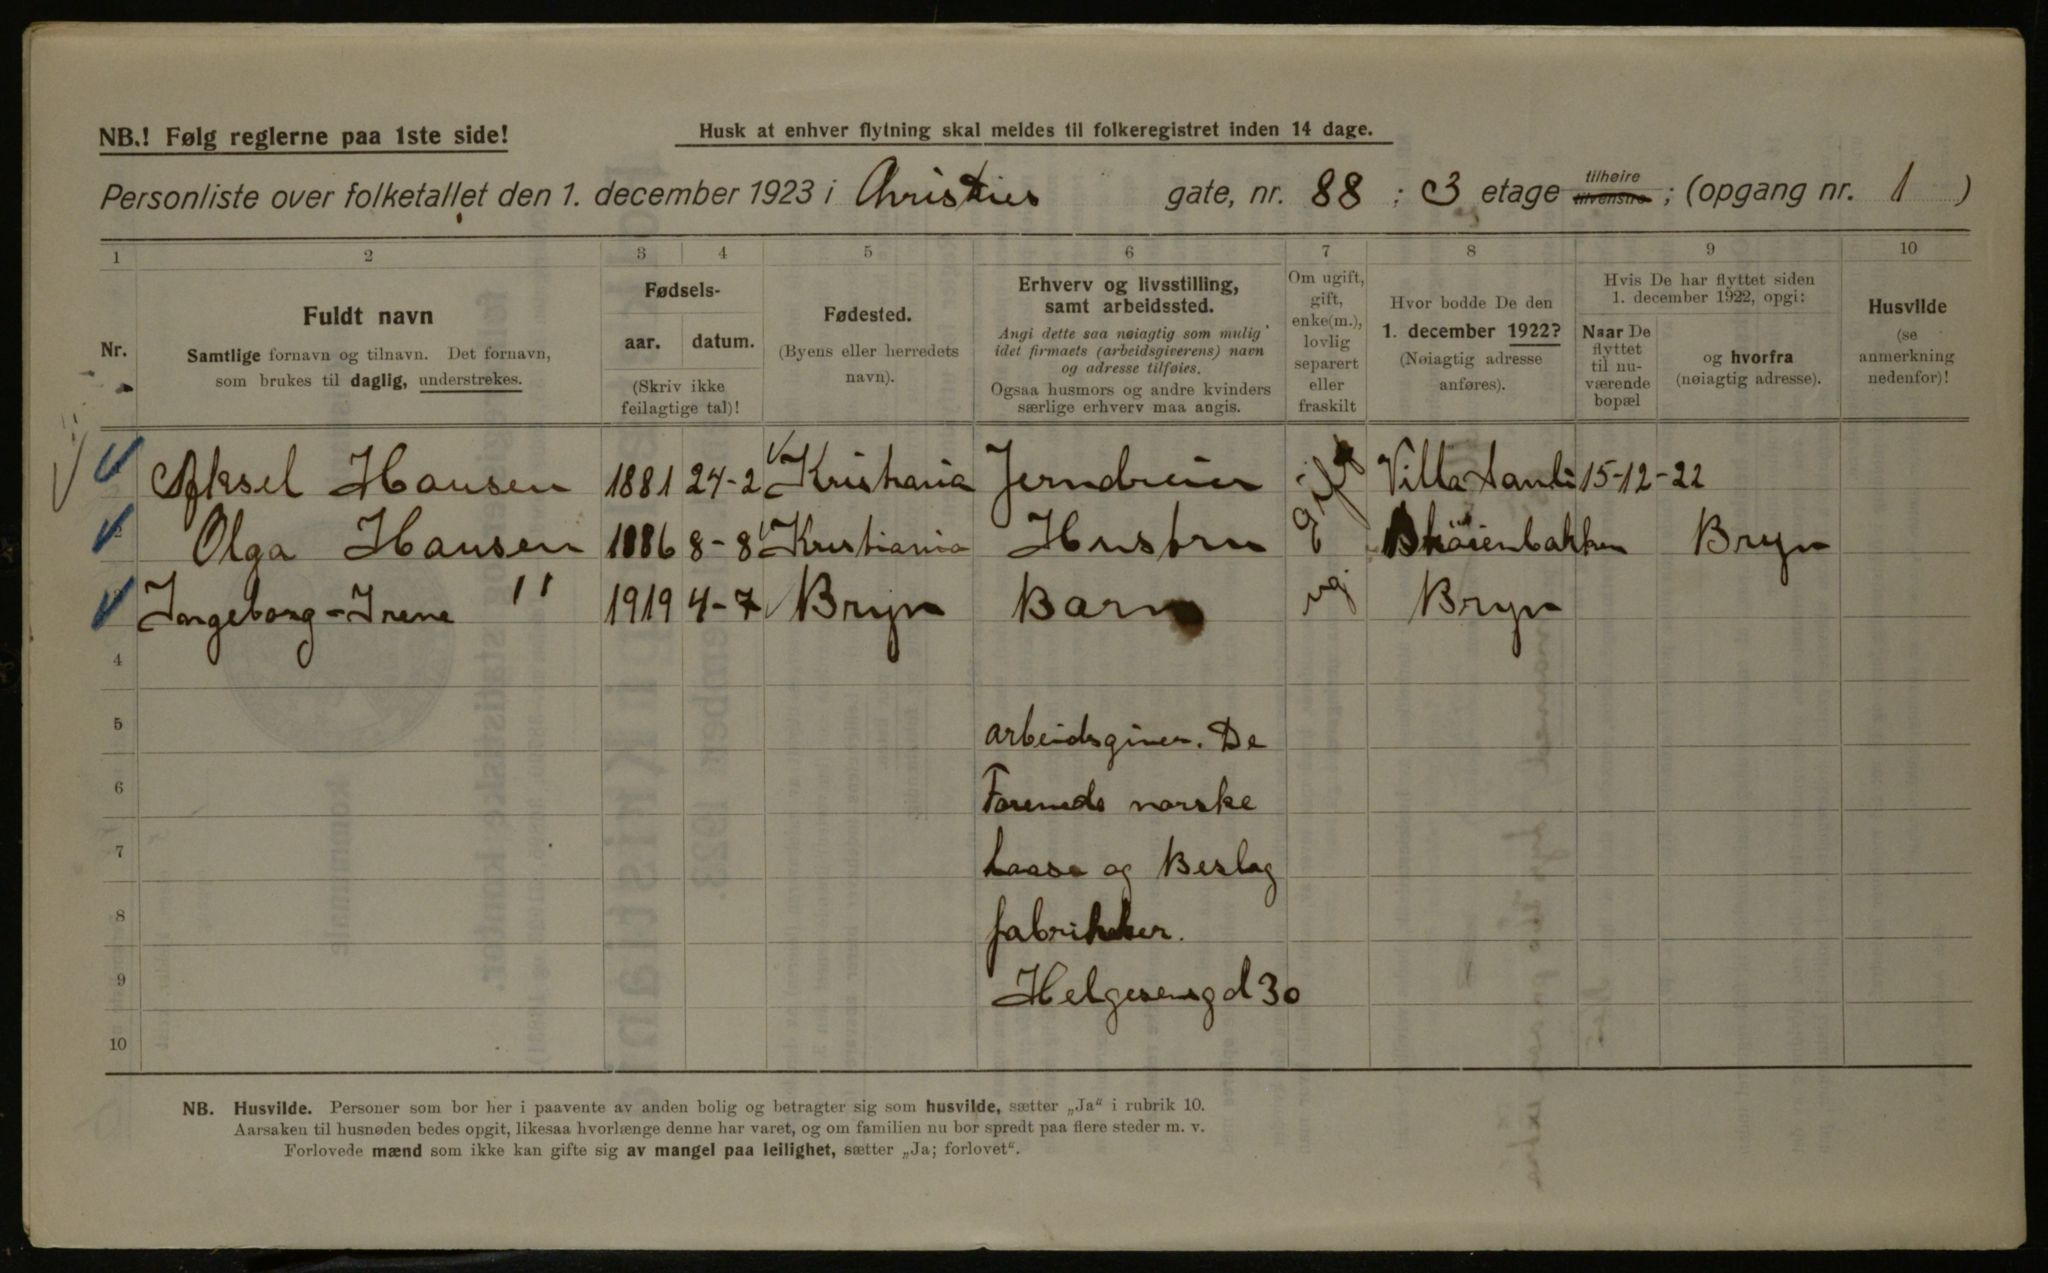 NB.! Følg reglerne paa 1ste side!
Husk at enhver flytning skal meldes til folkeregistret inden 14 dage.
Personliste over folketallet den 1. december 1923 i Christies gate, nr. 88 ; 3 etage tilhøire tilvenstre ; (opgang nr. 1 )
1 2 3 4 5 6 7 8 9 10
Nr.
Fuldt navn
Samtlige fornavn og tilnavn. Det fornavn,
som brukes til daglig, understrekes.
Fødsels-
aar. datum.
(Skriv ikke
feilagtige tal)!
Fødested.
(Byens eller herredets
navn).
Erhverv og livsstilling,
samt arbeidssted.
Angi dette saa nøiagtig som mulig
idet firmaets (arbeidsgiverens) navn
og adresse tilføies.
Ogsaa husmors og andre kvinders
særlige erhverv maa angis.
Om ugift,
gift,
enke(m.),
lovlig
separert
eller
fraskilt
Hvor bodde De den
1. december 1922?
(Nøiagtig adresse
anføres).
Hvis De har flyttet siden
1. december 1922, opgi:
Naar De
flyttet
til nu-
værende
bopæl
og hvorfra
(nøiagtig adresse).
Husvilde
(se
anmerkning
nedenfor)!
Aksel Hansen 1881 24-2 Kristiania Jerndreier gift Villa 15-12-22
2 Olga Hansen 1886 8-8 Kristiania Hustru g Bryn
Ingeborg-Irene " 1919 4-7 Bryn Barn ug Bryn
4
5 arbeidsgiver. De
6 Forenede norske
7 Laase og Beslag
8 fabrikker.
9 Helgesensgd 30
10
NB. Husvilde. Personer som bor her i paavente av anden bolig og betragter sig som husvilde, sætter „Ja“ i rubrik 10.
Aarsaken til husnøden bedes opgit, likesaa hvorlænge denne har varet, og om familien nu bor spredt paa flere steder m. v.
Forlovede mænd som ikke kan gifte sig av mangel paa leilighet, sætter „Ja; forlovet“.